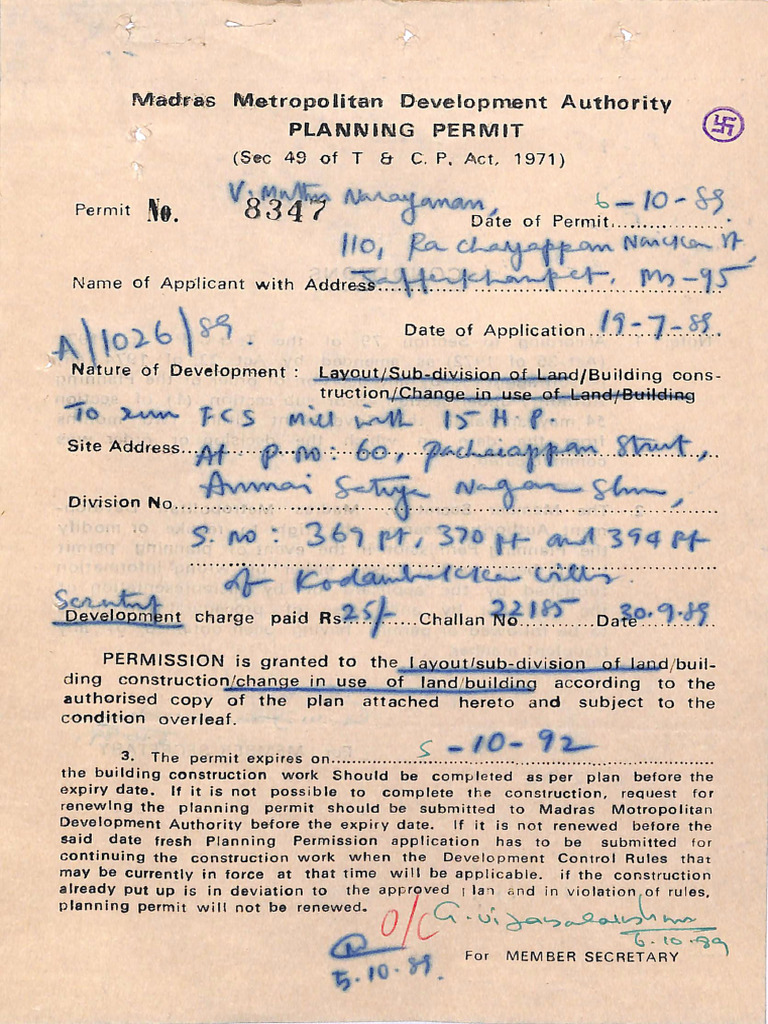 Madras Metropolitan Development Authority
PLANNING PERMIT
(Sec 49 of T & C. P. Act, 1971)
V. Muthu Narayanan,
Permit No. 8347 Date of Permit 6-10-89
110, Rachayappan Naicken St,
Name of Applicant with Address Jafferkhanpet, Ms-95
A/1026/89. Date of Application 19-7-89.
Nature of Development : Layout/Sub-division of Land/Building cons-
truction/Change in use of Land/Building
To run F.C.S Mill with 15 H.P.
Site Address At P. no: 60, Pachaiappan Street,
Annai Sathya Nagar
Division No.
S. no: 369 pt, 370 pt and 394 pt
of Kodambakkam
Scrutiny
Development charge paid Rs. 25/- Challan No 22185 Date 30.9.89
PERMISSION is granted to the layout/sub-division of land/buil-
ding construction/change in use of land/building according to the
authorised copy of the plan attached hereto and subject to the
condition overleaf.
3. The permit expires on 5-10-92
the building construction work Should be completed as per plan before the
expiry date. If it is not possible to complete the construction, request for
renewing the planning permit should be submitted to Madras Motropolitan
Development Authority before the expiry date. If it is not renewed before the
said date fresh Planning Permission application has to be submitted for
continuing the construction work when the Development Control Rules that
may be currently in force at that time will be applicable. if the construction
already put up is in deviation to the approved plan and in violation of rules,
planning permit will not be renewed.
O/C G. Vijayalakshmi
6.10.89
5.10.89.
For MEMBER SECRETARY